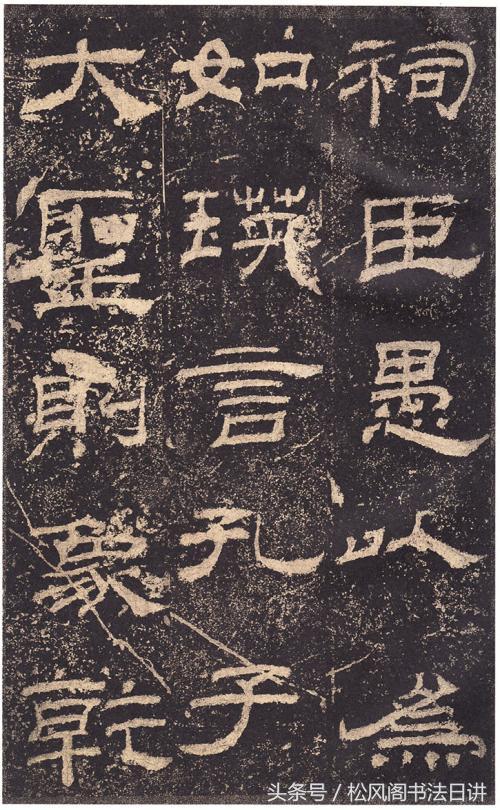 祠臣愚以為
如瑛言孔子
大聖則象乾
头条号 / 松风阁书法日讲